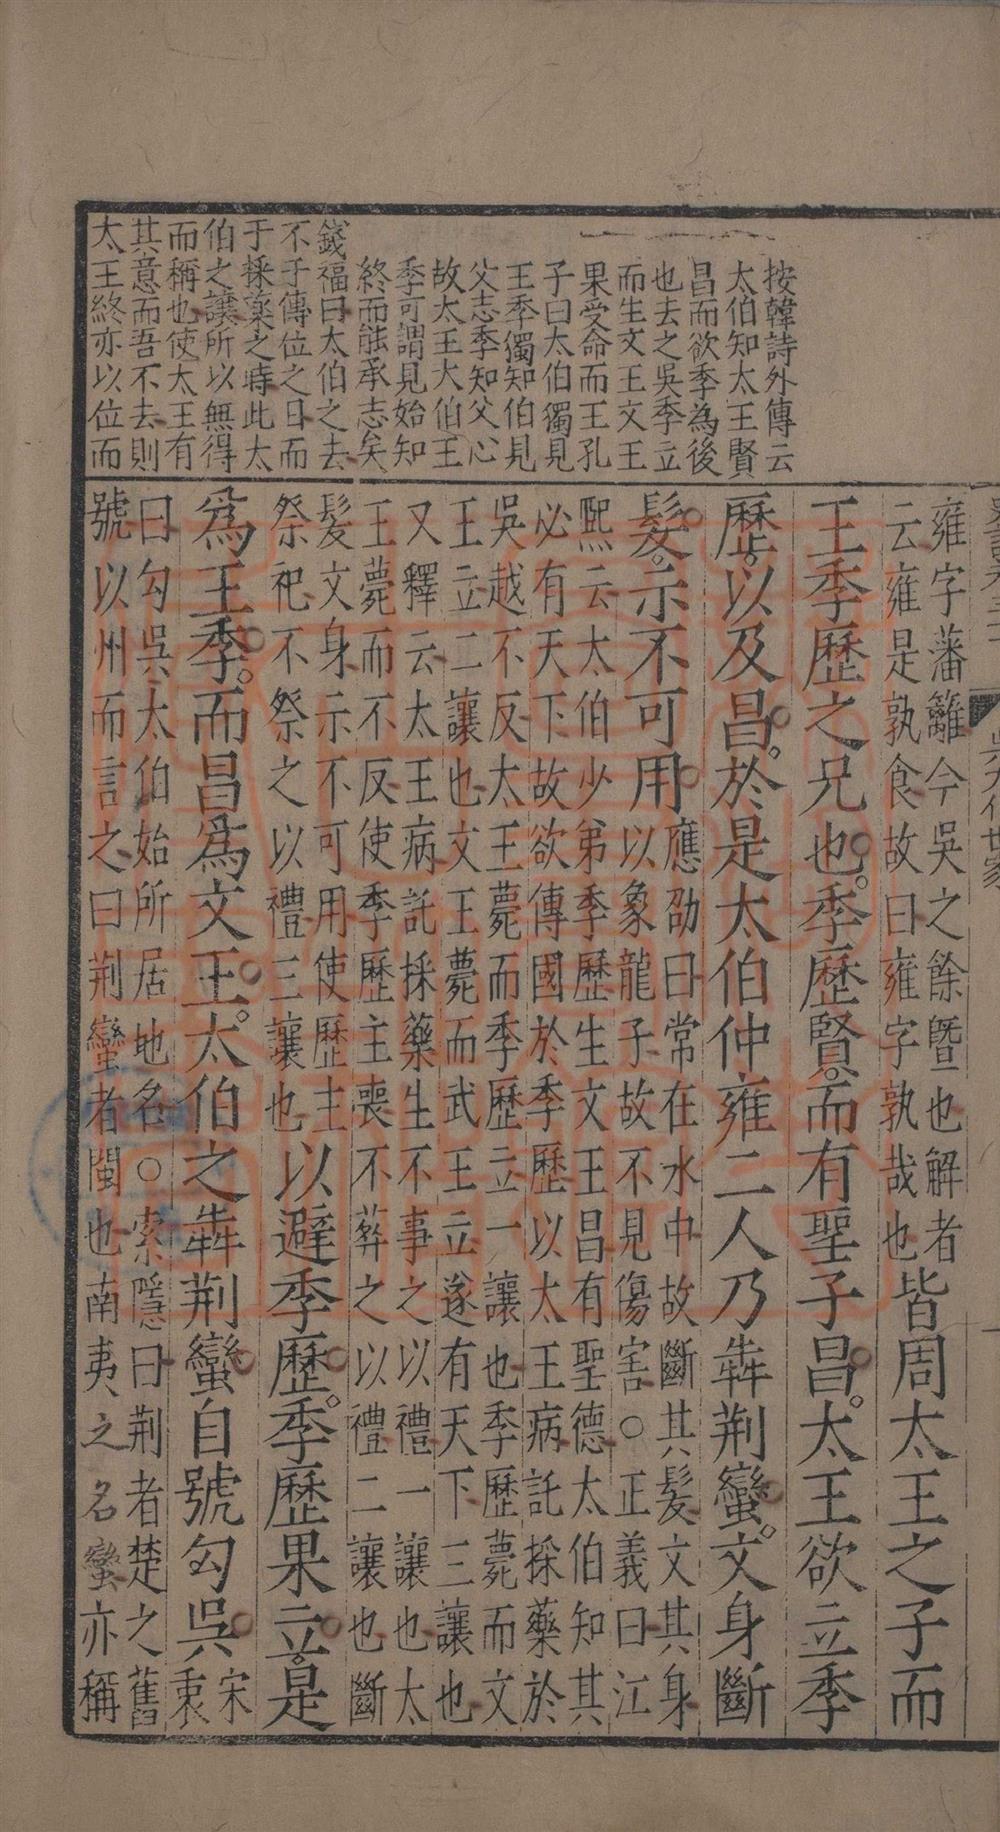 按韓詩外傳云
太伯知太王賢
昌而欲季為後
也去之吳季立
而生文王文王
果受命而王孔
子曰太伯獨見
王季獨知伯見
父志季知父心
故太王大伯王
季可謂見始知
終而能承志矣
錢福曰太伯之去
不于傳位之日而
于採藥之時此太
伯之讓所以無得
而稱也使太王有
其意而吾不去則
太王終亦以位而
吳太伯世家
雍字藩籬今吳之餘曁也解者
云雍是孰食故曰雍字孰哉也
皆周太王之子而
王季歷之兄也。季歷賢。而有聖子昌。太王欲立季
歷。以及昌。於是太伯仲雍二人乃犇荆蠻。文身斷
髮。示不可用
應劭曰常在水中故斷其髮文其身
以象龍子故不見傷害○正義曰江
熙云太伯少弟季歷生文王昌有聖德太伯知其
必有天下故欲傳國於季歷以太王病託採藥於
吳越不反太王薨而季歷立一讓也季歷薨而文
王立二讓也文王薨而武王立遂有天下三讓也
又釋云太王病託採藥生不事之以禮一讓也太
王薨而不反使季歷主喪不葬之以禮二讓也斷
髮文身示不可用使歷主
祭祀不祭之以禮三讓也
以避季歷。季歷果立。是
爲王季。而昌爲文王。太伯之犇荆蠻自號勾吳
宋
衷
曰勾吳太伯始所居地名○索隱曰荆者楚之舊
號以州而言之曰荆蠻者閩也南夷之名蠻亦稱